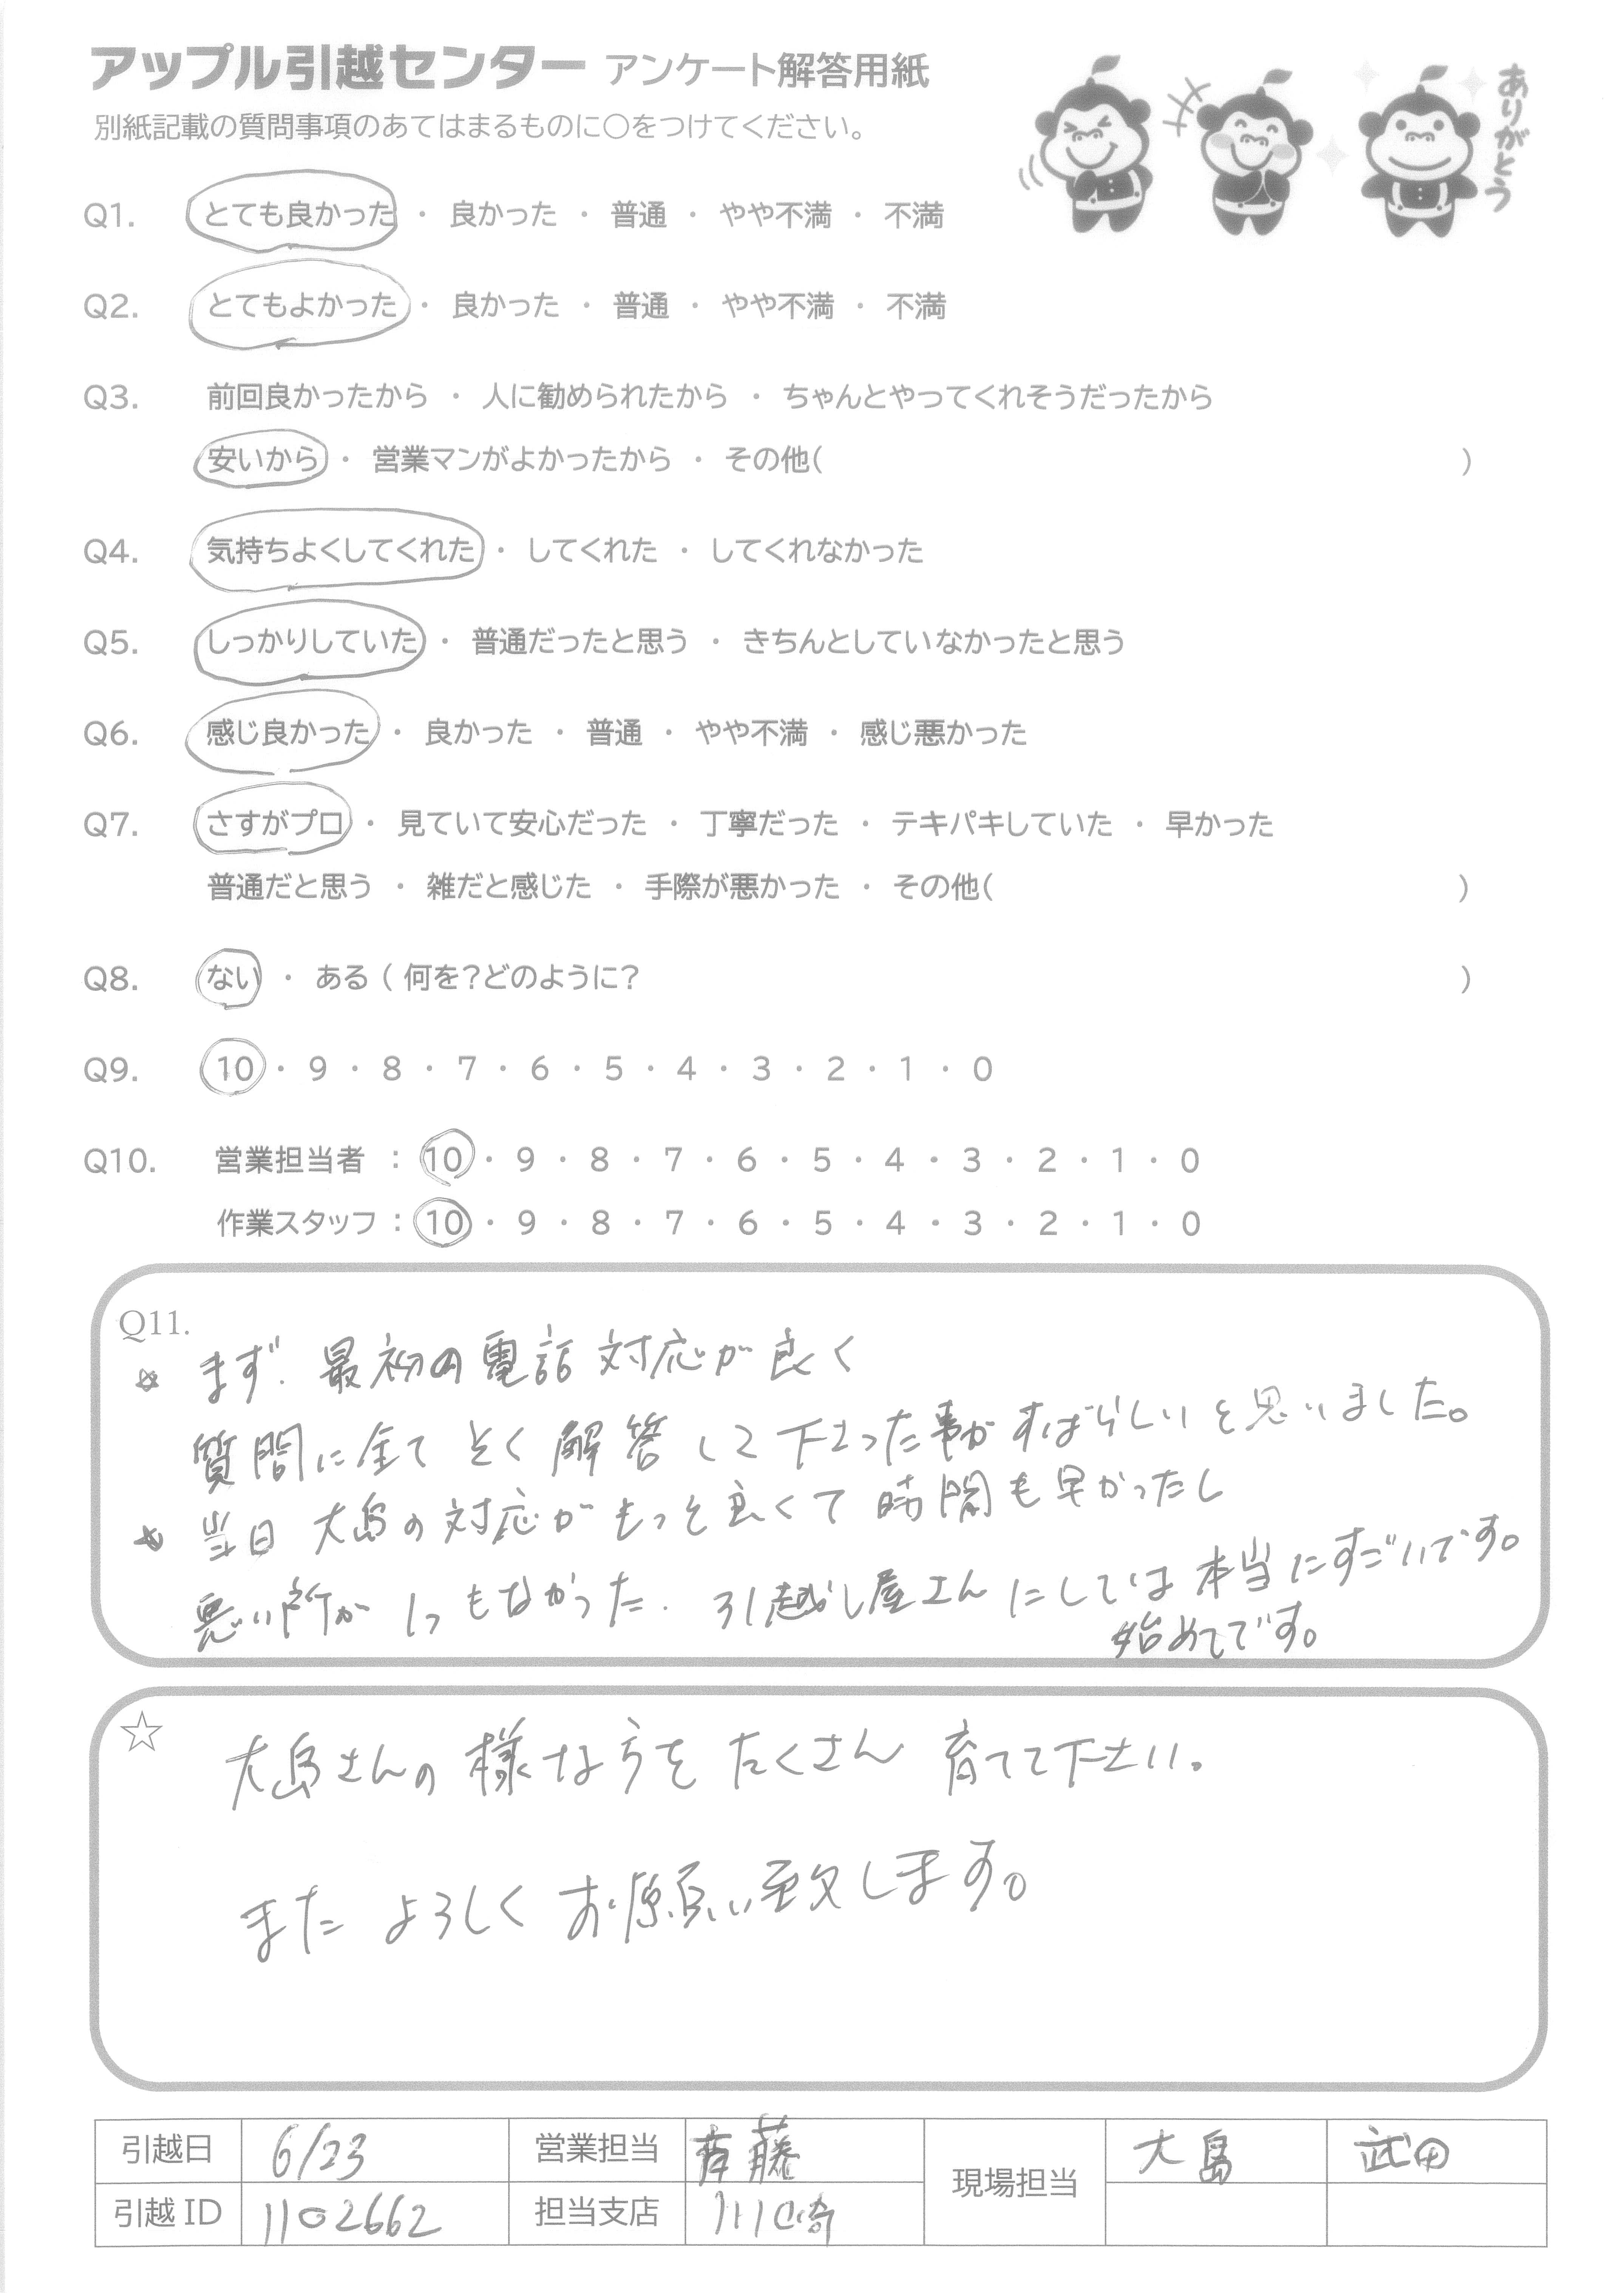 アップル引越センター アンケート解答用紙
別紙記載の質問事項のあてはまるものに○をつけてください。
ありがとう
Q1. とても良かった ・ 良かった ・ 普通 ・ やや不満 ・ 不満
Q2. とてもよかった ・ 良かった ・ 普通 ・ やや不満 ・ 不満
Q3. 前回良かったから ・ 人に勧められたから ・ ちゃんとやってくれそうだったから
安いから ・ 営業マンがよかったから ・ その他( )
Q4. 気持ちよくしてくれた ・ してくれた ・ してくれなかった
Q5. しっかりしていた ・ 普通だったと思う ・ きちんとしていなかったと思う
Q6. 感じ良かった ・ 良かった ・ 普通 ・ やや不満 ・ 感じ悪かった
Q7. さすがプロ ・ 見ていて安心だった ・ 丁寧だった ・ テキパキしていた ・ 早かった
普通だと思う ・ 雑だと感じた ・ 手際が悪かった ・ その他( )
Q8. ない ・ ある ( 何を?どのように? )
Q9. 10 ・ 9 ・ 8 ・ 7 ・ 6 ・ 5 ・ 4 ・ 3 ・ 2 ・ 1 ・ 0
Q10. 営業担当者 : 10 ・ 9 ・ 8 ・ 7 ・ 6 ・ 5 ・ 4 ・ 3 ・ 2 ・ 1 ・ 0
作業スタッフ : 10 ・ 9 ・ 8 ・ 7 ・ 6 ・ 5 ・ 4 ・ 3 ・ 2 ・ 1 ・ 0
Q11.
☆ まず、最初の電話対応が良く
質問に全て 解答して下さった事がすばらしいと思いました。
☆ 当日 大島の対応がもっと良くて時間も早かったし
悪い所が1つもなかった。引越し屋さんにしては本当にすごいです。
始めてです。
☆ 大島さんの様な方をたくさん育てて下さい。
また よろしくお願い致します。
引越日 6/23 営業担当 斉藤 現場担当 大島 武田
引越ID 1102662 担当支店 川崎